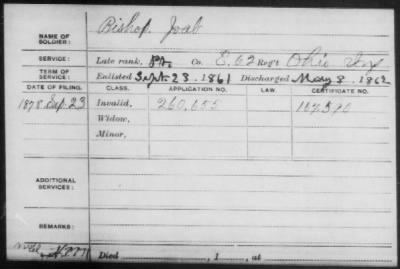 NAME OF SOLDIER: Bishop, Joab
SERVICE: Late rank, Pt. Co. E, 62 Reg't Ohio Inf
TERM OF SERVICE: Enlisted Sept. 23. 1861 Discharged May 8. 1862
DATE OF FILING. CLASS. APPLICATION NO. LAW. CERTIFICATE NO.
1878 Sep. 23 Invalid, 260,655
Widow,
Minor,
ADDITIONAL SERVICES:
REMARKS:
Died , 1 , at